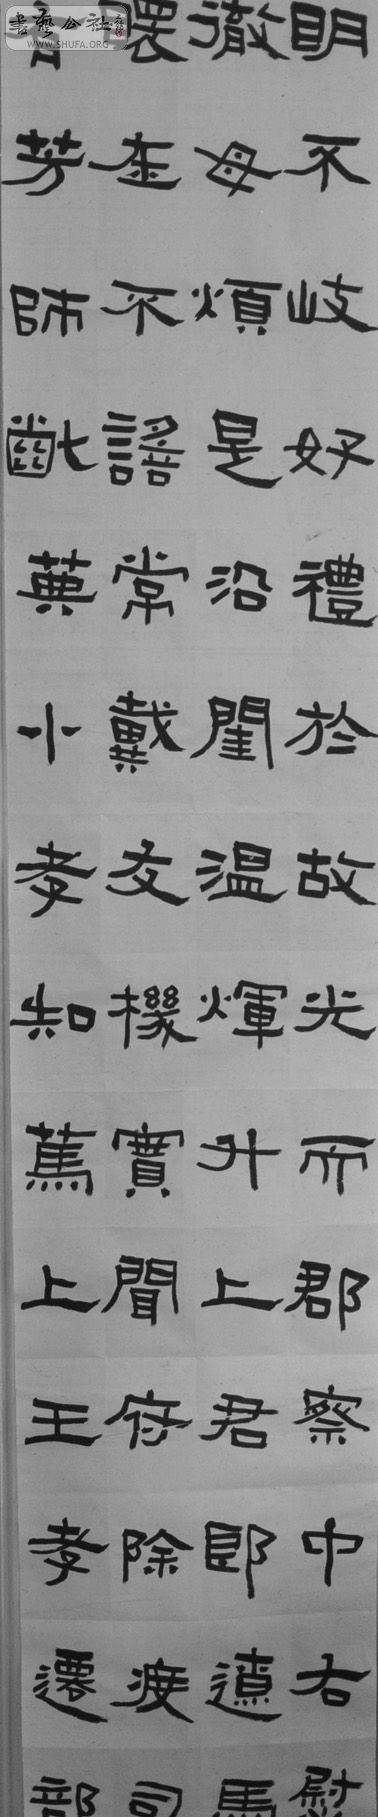 書藝公社
WWW.SHUFA.ORG
明不岐好禮於故光而郡察中右尉
徹母煩是沿閨溫煇升上君郎遺馬
在不常戴友機實聞府除司
芳師齔小孝知篤上王孝遷部